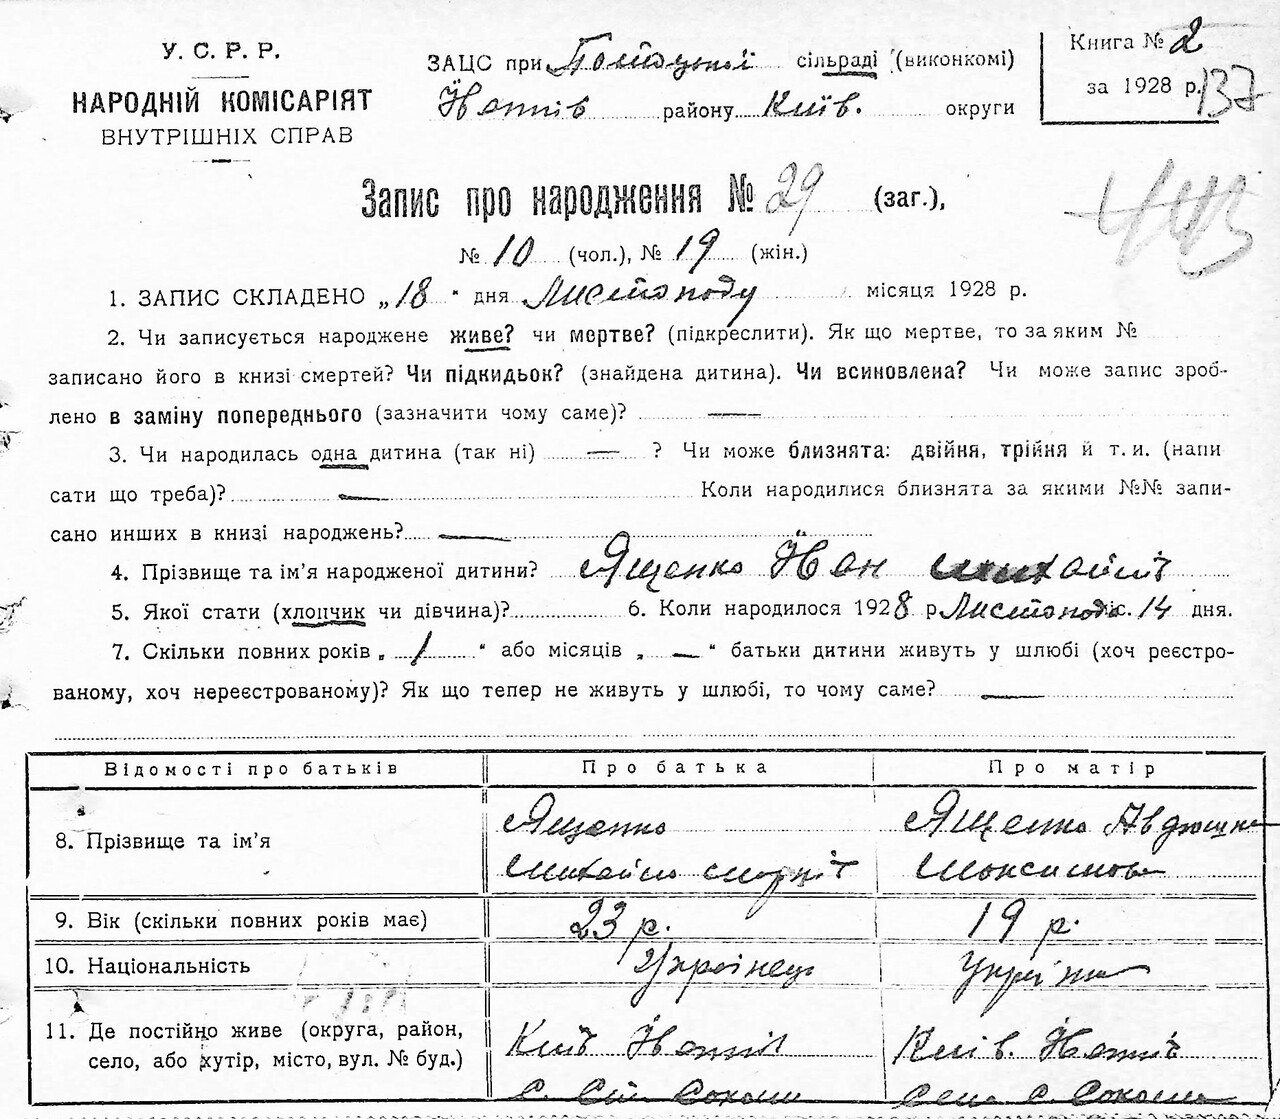 У. С. Р. Р.
НАРОДНІЙ КОМІСАРІЯТ
ВНУТРІШНІХ СПРАВ
ЗАЦС при сільраді (виконкомі)
району Київ. округи
Книга № 2
за 1928 р. 137
Запис про народження № 29 (заг.),
443
№ 10 (чол.), № 19 (жін.)
1. ЗАПИС СКЛАДЕНО „18" дня Листопаду місяця 1928 р.
2. Чи записується народжене живе? чи мертве? (підкреслити). Як що мертве, то за яким №
записано його в книзі смертей? Чи підкидьок? (знайдена дитина). Чи всиновлена? Чи може запис зроб-
лено в заміну попереднього (зазначити чому саме)? —
3. Чи народилась одна дитина (так ні) — ? Чи може близнята: двійня, трійня й т. и. (напи
сати що треба)? — Коли народилися близнята за якими №№ запи-
сано инших в книзі народжень? —
4. Прізвище та ім'я народженої дитини? Ященко Йван
5. Якої стати (хлопчик чи дівчина)? 6. Коли народилося 1928 р Листопада іс. 14 дня.
7. Скільки повних років „ 1 " або місяців „ — " батьки дитини живуть у шлюбі (хоч реєстро-
ваному, хоч нереєстрованому)? Як що тепер не живуть у шлюбі, то чому саме? —
Відомості про батьків Про батька Про матір
8. Прізвище та ім'я Ященко Михайло Ященко
9. Вік (скільки повних років має) 23 р. 19 р.
10. Національність Українець Українка
11. Де постійно живе (округа, район,
село, або хутір, місто, вул. № буд.)
Київ Київ.